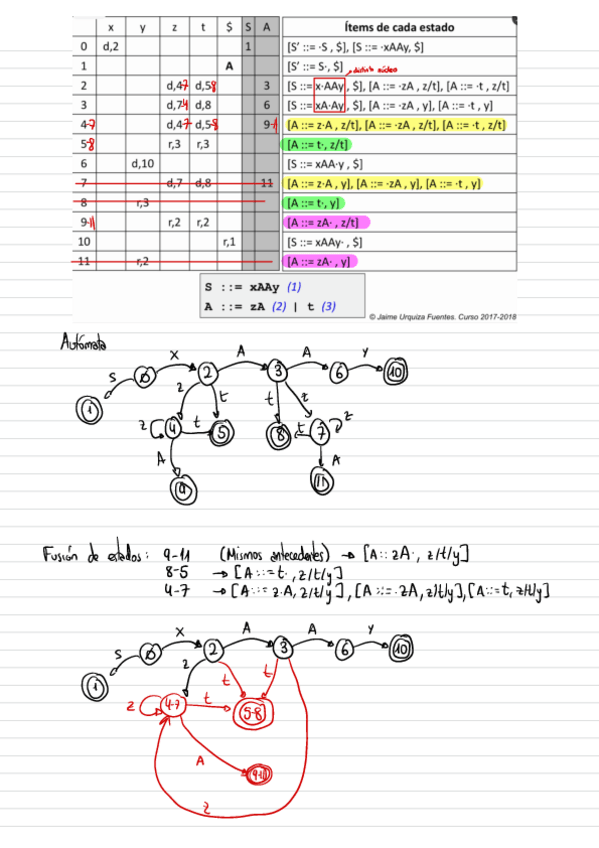 x y z t $ S A Ítems de cada estado
0 d,2 1 [S' ::= ·S , $], [S ::= ·xAAy, $]
1 A [S' ::= S·, $] distinto núcleo
2 d,47 d,58 3 [S ::= x·AAy , $], [A ::= ·zA , z/t], [A ::= ·t , z/t]
3 d,74 d,8 6 [S ::= xA·Ay , $], [A ::= ·zA , y], [A ::= ·t , y]
4-7 d,47 d,5-8 9-11 [A ::= z·A , z/t], [A ::= ·zA , z/t], [A ::= ·t , z/t]
5-8 r,3 r,3 [A ::= t·, z/t]
6 d,10 [S ::= xAA·y , $]
7 d,7 d,8 11 [A ::= z·A , y], [A ::= ·zA , y], [A ::= ·t , y]
8 r,3 [A ::= t·, y]
9-11 r,2 r,2 [A ::= zA· , z/t]
10 r,1 [S ::= xAAy· , $]
11 r,2 [A ::= zA· , y]
S ::= xAAy (1)
A ::= zA (2) | t (3)
© Jaime Urquiza Fuentes. Curso 2017-2018
Autómata
S X A A Y
1 0 2 3 6 10
z t t z
z 4 t 5 8 t 7 z
A A
9 11
Fusión de estados: 9-11 (Mismos antecedentes) → [A::zA·, z/t/y]
8-5 → [A::=t·, z/t/y]
4-7 → [A::=z·A, z/t/y], [A::=·zA, z/t/y], [A::=t, z/t/y]
S X A A Y
1 0 2 3 6 10
z t t
z 4-7 t 5-8
A
9-11
z